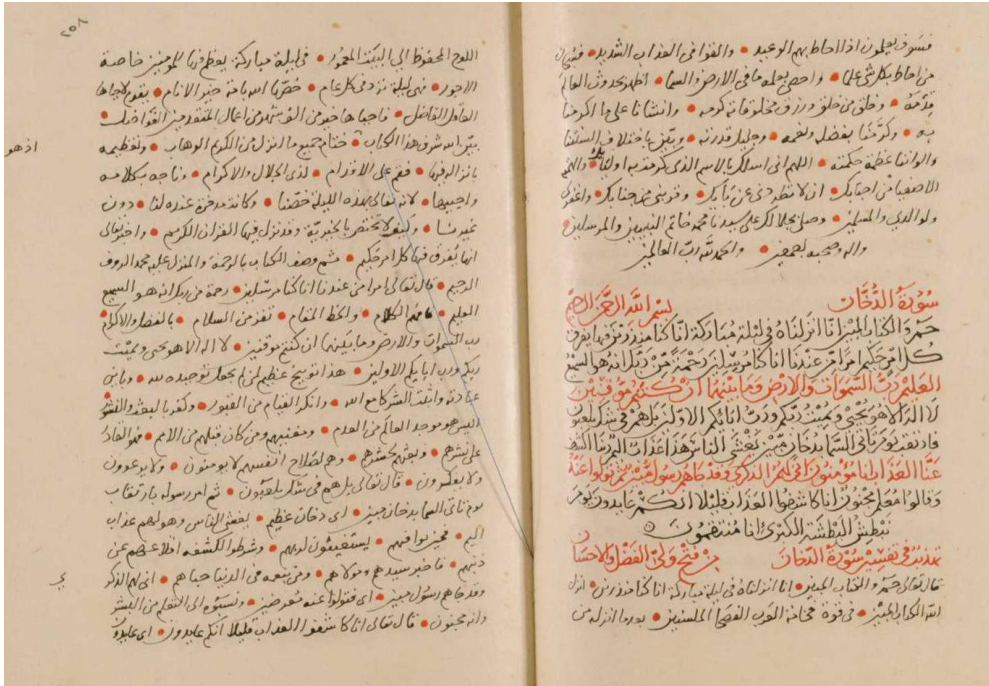 فسوف يعلمون اذا احاط بهم الوعيد • والقوا في العذاب الشديد •
من احاط بكل شئ علما • واحصى بعلمه ما في الارض والسما • اظهر بحدوث العالم
قدمه • وخلق من خلق ورزق مخلوقاته كرمه • وانشانا على ما اكرمنا
به • وكرمنا بفضله ونعمه • وجليل قدرته • باختلاف السنتنا
والواننا عظمة حكمته • اللهم اني اسالك بالاسم الذي كرمت به اولياك
الاصفيا من احبابك • ان لا تطردني عن بابك • وقربني من جنابك • واغفر لي
ولوالدي والمسلمين • وصل بجلالك على سيدنا محمد خاتم النبيين والمرسلين •
واله وصحبه اجمعين • والحمد لله رب العالمين
سورة الدخان بسم الله الرحمن الرحيم
حم والكتاب المبين انا انزلناه في ليلة مباركة انا كنا منذرين فيها يفرق
كل امر حكيم امرا من عندنا انا كنا مرسلين رحمة من ربك انه هو السميع
العليم رب السموات والارض وما بينهما ان كنتم موقنين
لا اله الا هو يحيي ويميت ربكم ورب ابائكم الاولين بل هم في شك يلعبون
فارتقب يوم تاتي السما بدخان مبين يغشى الناس هذا عذاب اليم ربنا اكشف
عنا العذاب انا مؤمنون انى لهم الذكرى وقد جاهم رسول مبين ثم تولوا عنه
وقالوا معلم مجنون انا كاشفوا العذاب قليلا انكم عايدون يوم
نبطش البطشة الكبرى انا منتقمون
في تفسير سورة الدخان من فتح ولي الفضل والاحسان
قال تعالى حم والكتاب المبين • انا انزلناه في ليلة مباركة انا كنا منذرين • انزل
الله الكتاب المبين • في قوة العرب الفصحا الملسنين • بعد ما انزله من
٢٥٨
اللوح المحفوظ الى البيت المعمور • في ليلة مباركة يعظم فيها للمومنين خاصة
الاجور • فهي ليلة تزد في كل عام • خص بها الله بامة خير الانام • يقوم لاحياها
العاقل الفاضل • فاحياها خير من الف شهر من اعمال المتقدمين
بين الله شرف هذا الكتاب • المنزل من الكريم الوهاب • ولتعظيمه
اذ هو
بانزاله فيها • فقم على الاقدام • لذي الجلال والاكرام • وناجه بكلامه
واحييها • لانه تعالى بهذه الليلة خصنا • وكانت مدخرة عنده لنا • دون
غيرنا • وكيف لا تختص بالخيرية وقد نزل فيها القران الكريم • واخبر تعالى
انها يفرق فيها كل امر حكيم • ثم وصف الكتاب بالرحمة والمنزل عليه محمد الروف
الرحيم • قال تعالى امرا من عندنا انا كنا مرسلين • رحمة من ربك انه هو السميع
العليم • الكلام • والحظ المقام • تفز من السلام • بالفضل والاكرام
رب السموات والارض وما بينهما ان كنتم موقنين • لا اله الا هو يحيي ويميت
ربكم ورب ابايكم الاولين • هذا توبيخ عظيم لمن لم يجعل توحيده لله •
عبادته واثبت الشركا مع الله • وانكر القيام من القبور • وكفر بالبعث والنشور
اليس هو موجد العالم من العدم • ومفنيهم ومن كان قبلهم من الامم • فهو القادر
على نشرهم • وبعثهم وحشرهم • وهم لصلاح انفسهم لا يومنون • ولا يوعدون
ولا يفكرون • قال تعالى بل هم في شك يلعبون • ثم امر رسوله بارتقاب
يوم تاتي السما بدخان مبين • اي دخان عظيم • يغشى الناس وهو لهم عذاب
اليم • يستغيثون لربهم • وشرطوا لكشفه اقلاعهم عن
ذنبهم • فاخبر سيدهم ومولاهم • ومن نبيه في الدنيا جاهم • انى لهم الذكرى
وقد جاهم رسول مبين • اي فتولوا عنه معرضين • ونسبوه الى التعلم من البشر
وانه مجنون • قال تعالى انا كاشفوا العذاب قليلا انكم عايدون • اي عايدون